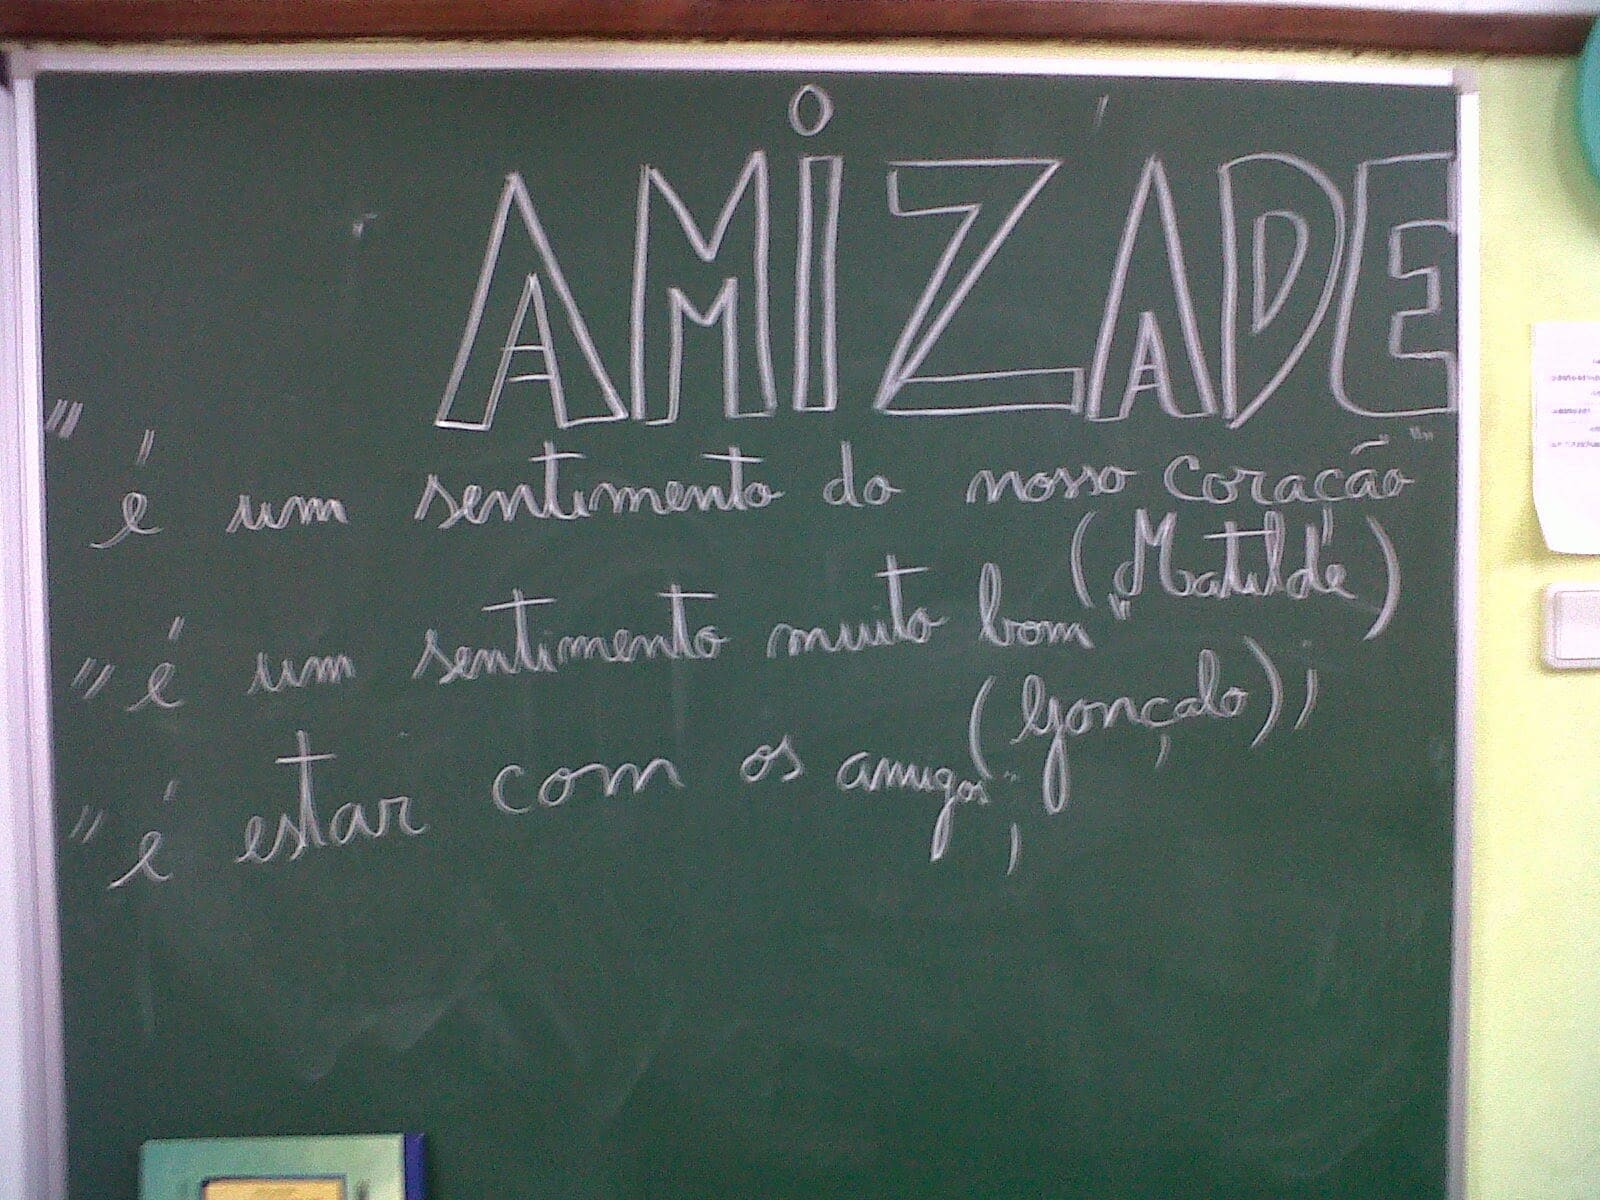 AMiZADE
"é um sentimento do nosso coração"
(Matilde)
"é um sentimento muito bom"
(Gonçalo);
"é estar com os amigos";